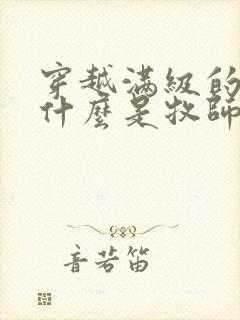 穿越滿級的
什麼是牧師
音若笛